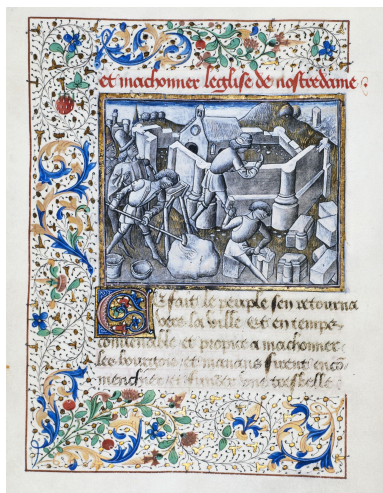 et machonner leglise de nostredame :
Ce fait le peuple sen retourna
vers la ville Et en temps
conuenable et propice a machonner
les bourgois et manans furent encō
menchier et fonder une tresbelle